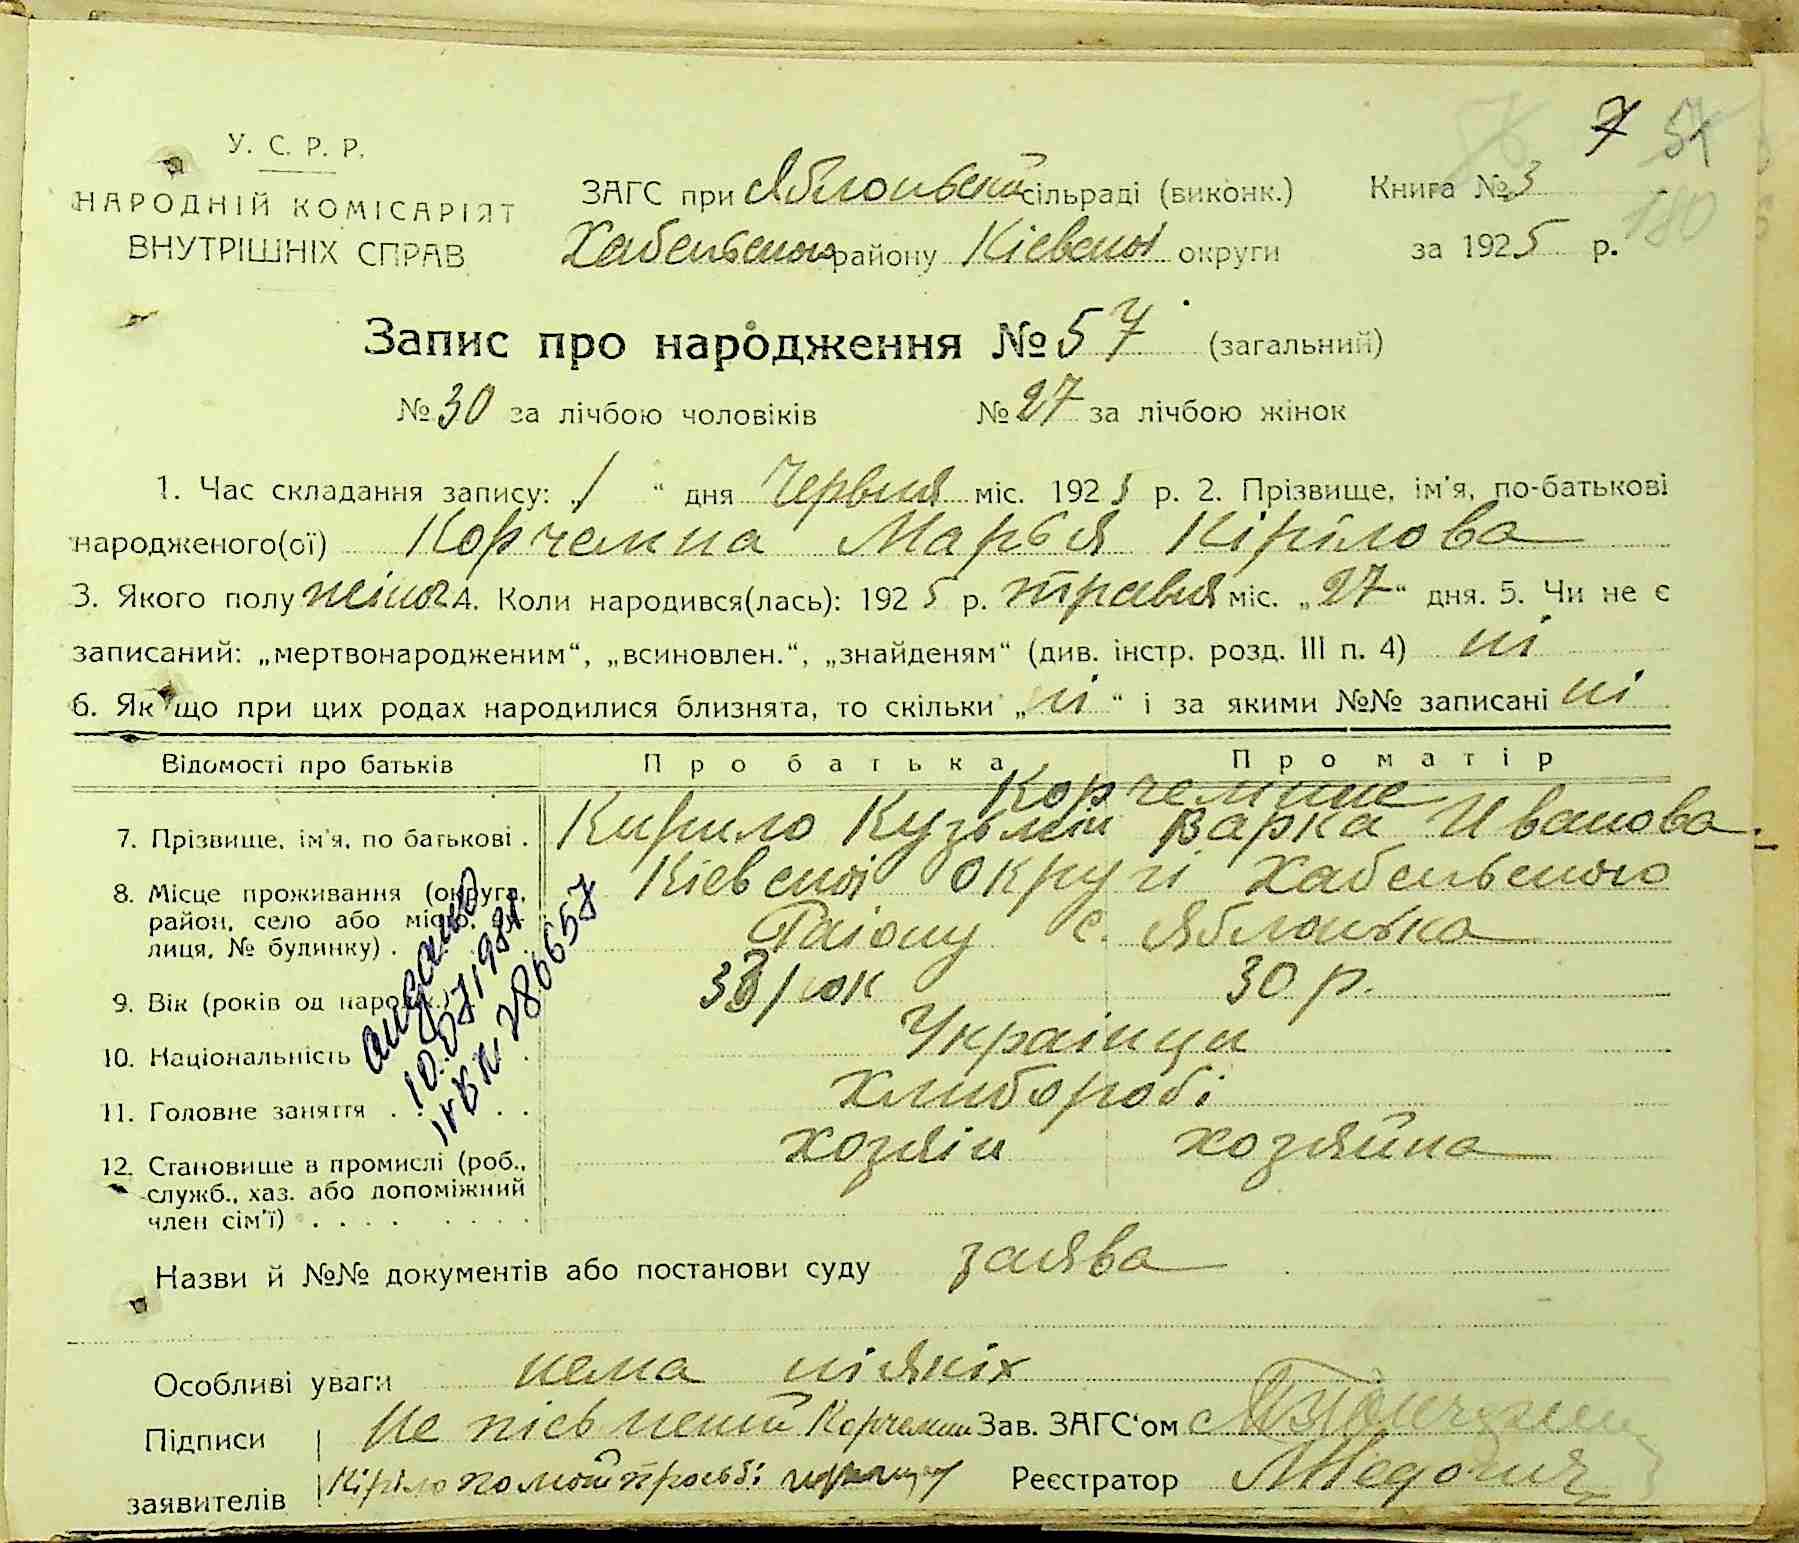 7 57
180
У. С. Р. Р.
НАРОДНІЙ КОМІСАРІЯТ
ВНУТРІШНІХ СПРАВ
ЗАГС при Яблоньскій сільраді (виконк.) Книга № 3
Хабенського району Кіевскоі округи за 1925 р.
Запис про народження № 57 (загальний)
№ 30 за лічбою чоловіків № 27 за лічбою жінок
1. Час складання запису: „1“ дня Червня міс. 1925 р. 2. Прізвище, ім'я, по-батькові
народженого(ої) Корчемна Марья Кірілова
3. Якого полу жіноч 4. Коли народився(лась): 1925 р. травня міс. „27“ дня. 5. Чи не є
записаний: „мертвонародженим“, „всиновлен.“, „знайденям“ (див. інстр. розд. III п. 4) ні
6. Якщо при цих родах народилися близнята, то скільки „ні“ і за якими №№ записані ні
Відомості про батьків Про батька Про матір
Корчемние
7. Прізвище, ім'я, по батькові . Кирило Кузьмін Варка Иванова
8. Місце проживання (округа, Кіевскоі округи Хабенського
район, село або місто, ву-
лиця, № будинку) . Раіону с. Яблонька
9. Вік (років од народж.) 33 рок 30 р.
10. Національність Украінци
11. Головне заняття . . . . Хлиборобі
12. Становище в промислі (роб., хозяін хозяйка
служб., хаз. або допоміжний
член сім'ї) . . . . . . . .
10.07.1981
286657
Назви й №№ документів або постанови суду заява
Особливі уваги нема ніякіх
Підписи Не písьмений Корчемни Зав. ЗАГС'ом
заявителів Кіріло по моій просьбі Реєстратор